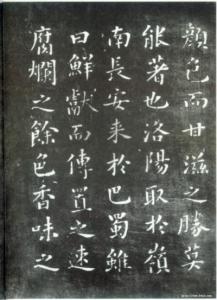 顏色而甘滋之勝莫
能著也洛陽取於嶺
南長安來於巴蜀雖
曰鮮獻而傳置之速
腐爛之餘色香味之